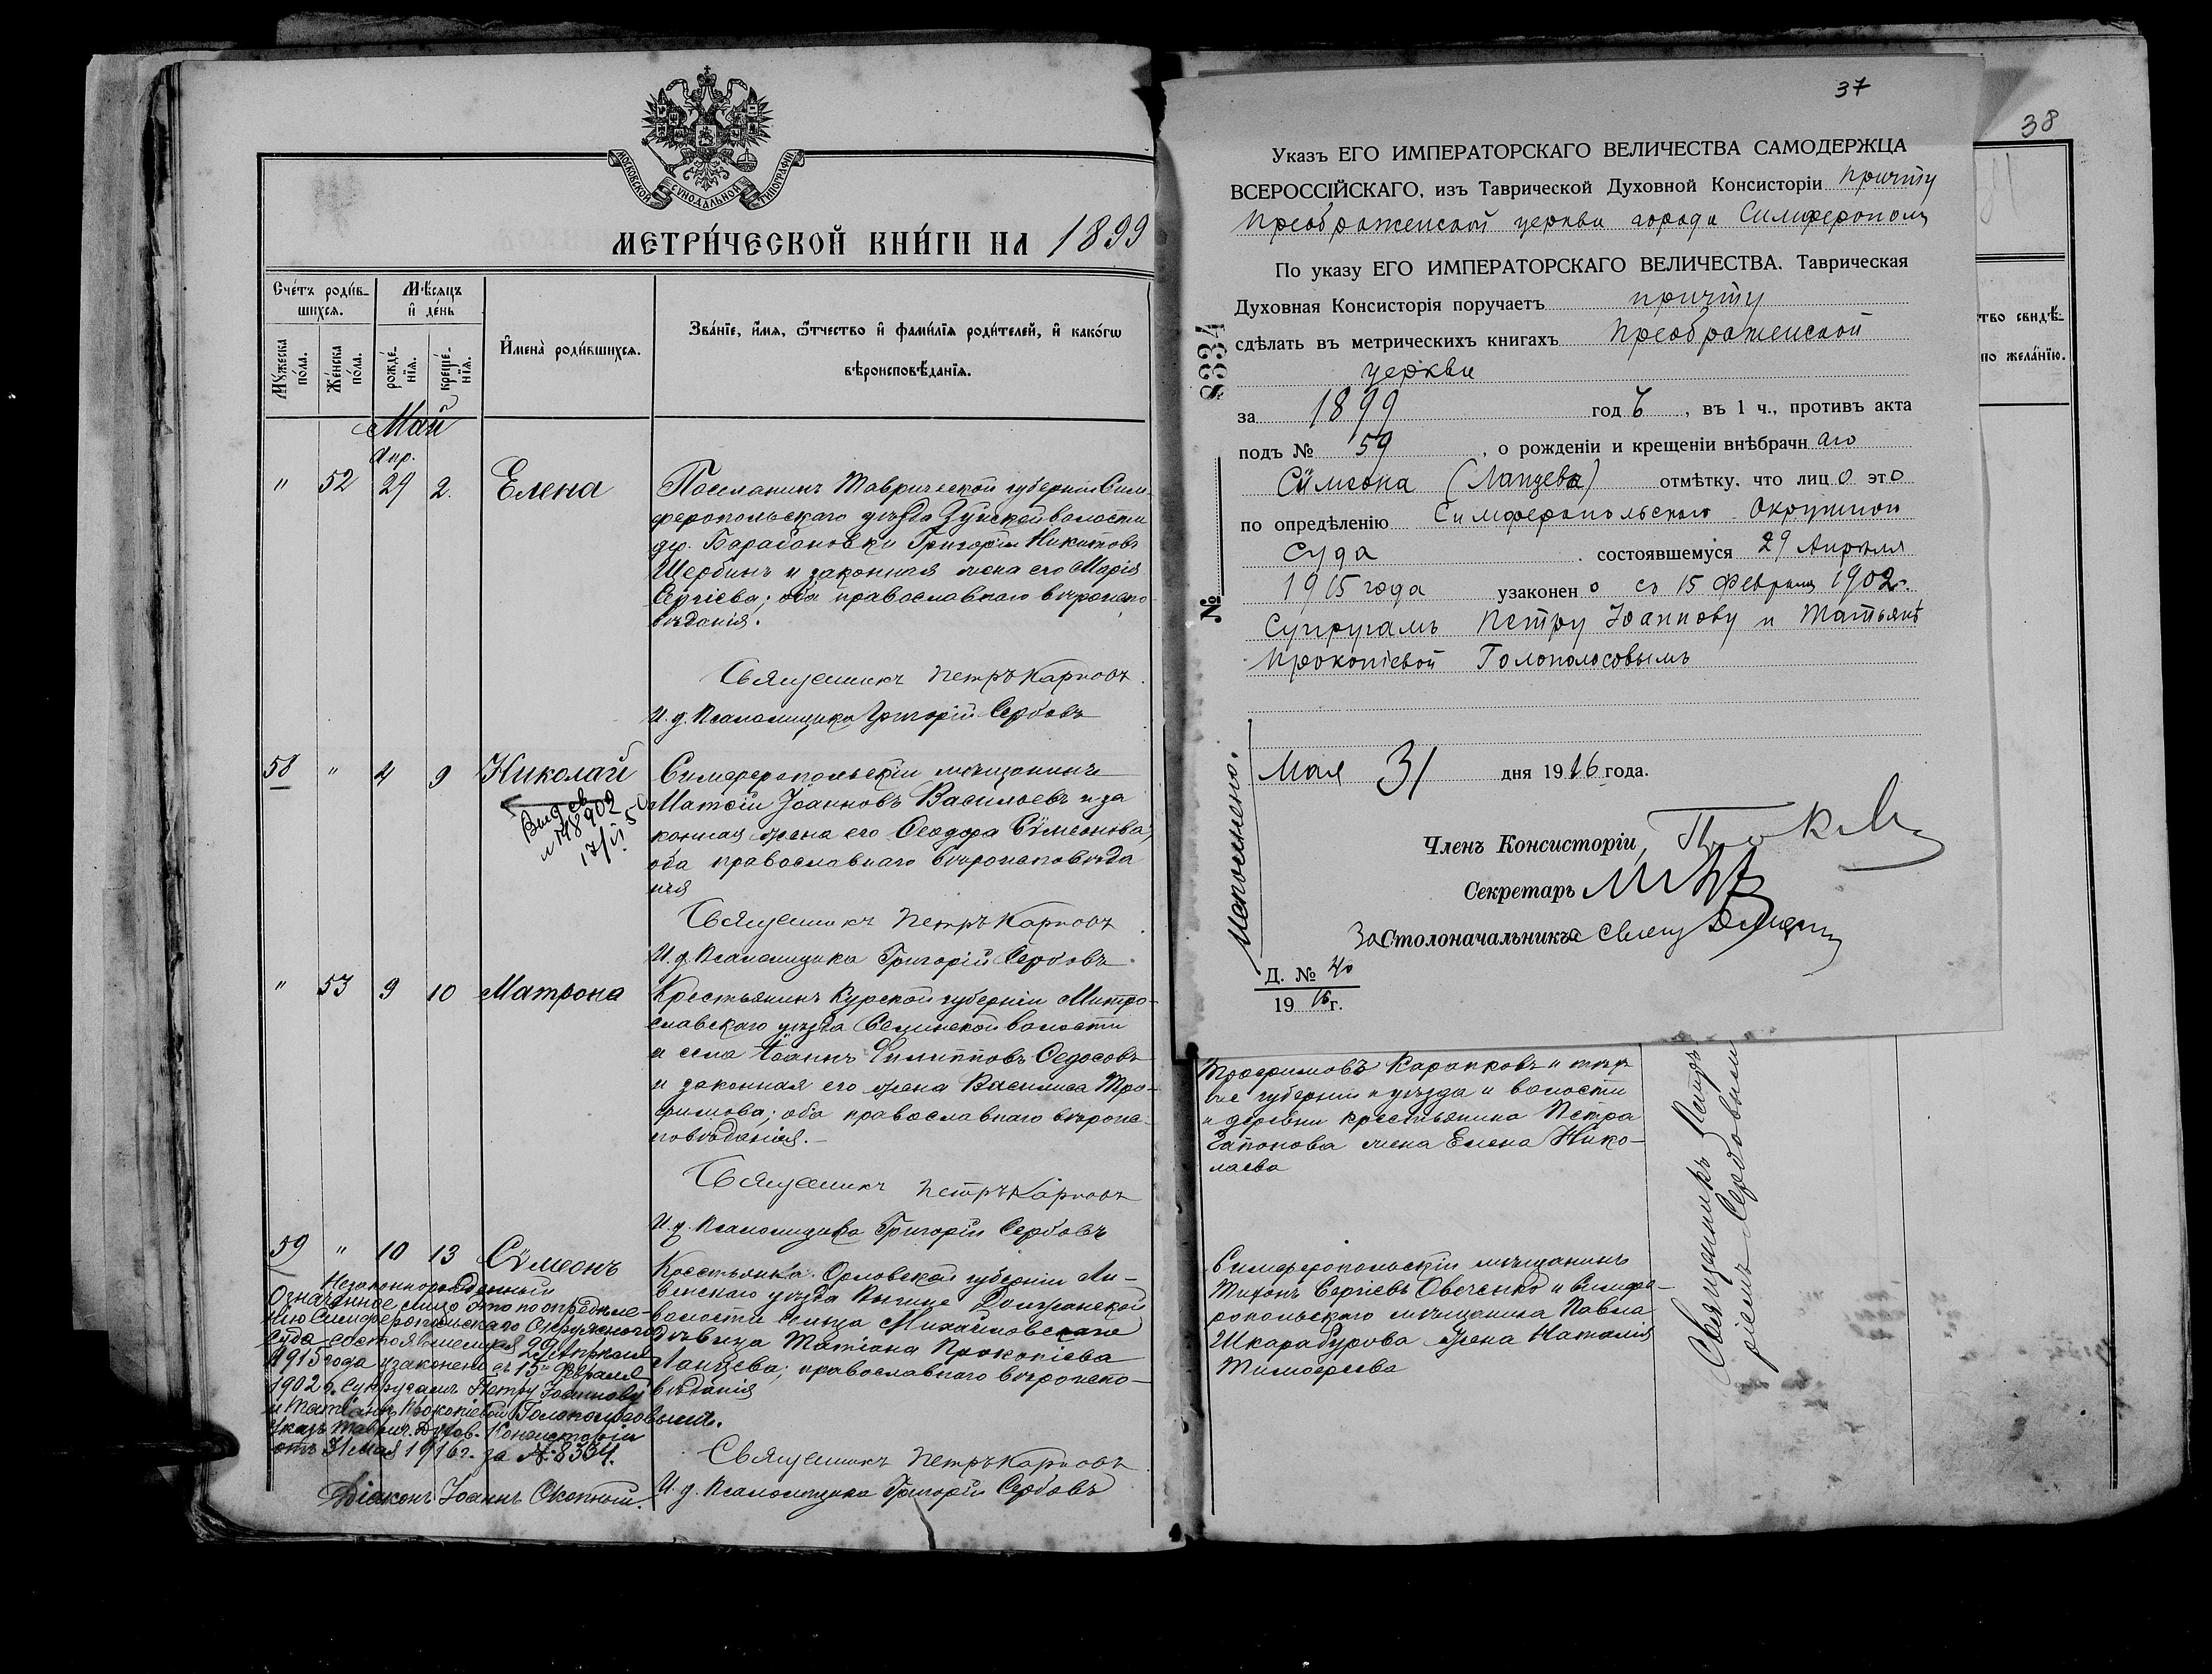 МОСКОВСКОЙ СѴНОДАЛЬНОЙ ТИПОГРАФІИ
МЕТРИ́ЧЕСКОЙ КНИ́ГИ НА 1899
Сче́тъ роди́в-
шихся.
Мѣ́сяцъ
и҆ де́нь
И҆мена̀ роди́вшихся.
Зва́нїе, и҆́мя, ѻ҆́тчество и҆ фами́лїя роди́телей, и҆ како́гѡ
вѣроисповѣ́данїя.
Мꙋ́жеска
по́ла.
Же́нска
по́ла.
рожде́-
нїя.
креще́-
нїя.
Май
Апр.
" 52 29 2. Елена
Поселянинъ Таврической губерніи Сим-
феропольскаго уѣзда Зуйской волости
др. Барабановки Григорій Никитовъ
Щербинъ и законная жена его Марія
Сергіева; оба православнаго вѣроиспо-
вѣданія.
Священникъ Петръ Карповъ
И. д. Псаломщика Григорій Сербовъ
58 " 4 9 Николай
Симферопольскій мѣщанинъ
Матѳій Іоанновъ Васильевъ и за
конная жена его Ѳеодора Сѵмеонова;
оба православнаго вѣроисповѣда
нія
№ 148 902
17/VI
Священникъ Петръ Карповъ
И. д. Псаломщика Григорій Сербовъ
" 53 9 10 Матрона
Крестьянинъ Курской губерніи Митро-
славскаго уѣзда волости
и села Іоаннъ Филипповъ Ѳедосовъ
и законная его жена Василиса Тро-
фимова; оба православнаго вѣроис-
повѣданія.-
Священникъ Петръ Карповъ
И. д. Псаломщика Григорій Сербовъ
59 " 10 13 Сѵмеонъ
Незаконнорожденный
Крестьянка Орловской губерніи Ли-
венскаго уѣзда Должанской
волости сельца Михайловскаго
дѣвица Татіана Прокопіева
Лапцева; православнаго вѣроиспо-
вѣданія
Означенное лицо это по опредѣле-
нію Симферопольскаго Окружного
Суда состоявшемуся 29 Апрѣля
1915 года узаконено съ 15 Февраля
1902 г. Супругамъ Петру Іоаннову
и Татіанѣ Прокопіевой Голополосовымъ.
Указъ Таврич. Духов. Консисторіи
отъ 31 мая 1916 г. за № 8334.
Діаконъ Іоаннъ Окопный.
Священникъ Петръ Карповъ
И. д. Псаломщика Григорій Сербовъ
37
Указъ ЕГО ИМПЕРАТОРСКАГО ВЕЛИЧЕСТВА САМОДЕРЖЦА
ВСЕРОССІЙСКАГО, изъ Таврической Духовной Консисторіи причту
Преображенской церкви города Симферополя
По указу ЕГО ИМПЕРАТОРСКАГО ВЕЛИЧЕСТВА. Таврическая
Духовная Консисторія поручаетъ причту
сдѣлать въ метрическихъ книгахъ Преображенской
церкви
за 1899 год ъ, въ 1 ч., противъ акта
подъ № 59, о рожденіи и крещеніи внѣбрачн аго
Сѵмеона (Лапцева) отмѣтку, что лиц о эт о
по опредѣленію Симферопольскаго Окружнаго
Суда состоявшемуся 29 Апрѣля
1915 года узаконен о съ 15 Февраля 1902 г.
Супругамъ Петру Іоаннову и Татьянѣ
Прокопіевой Голополосовымъ
Мая 31 дня 1916 года.
Членъ Консисторіи,
Секретарь
За Столоначальника
Д. № 40
19 16 г.
№ 8334
Исполнено.
38
тво свидѣ́-
по жела́нїю.
Трофимовъ Карапковъ и той
же губерніи и уѣзда и волости
и деревни крестьянина Петра
Гапонова жена Елена Нико-
лаева
Симферопольскій мѣщанинъ
Тихонъ Сергіевъ Овеченко и Симфе-
ропольскаго мѣщанина Павла
Шкарабурова жена Наталія
Тимофеева
Священникъ Петръ
Сербовымъ